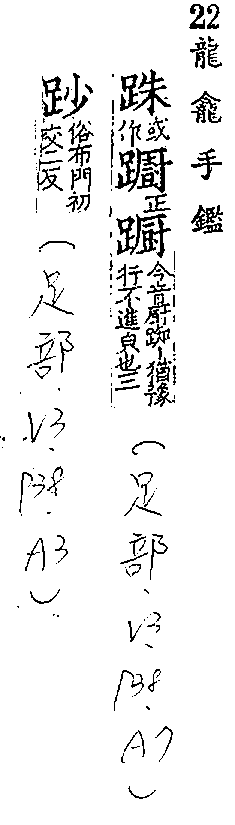 22 龍龕手鑑
跦或作𨅒正躕今音厨踟丨猶豫行不進皃也三
(足部.V3.P38.A7)
䟞俗布門初交二反
(足部.V3.P38.A3)